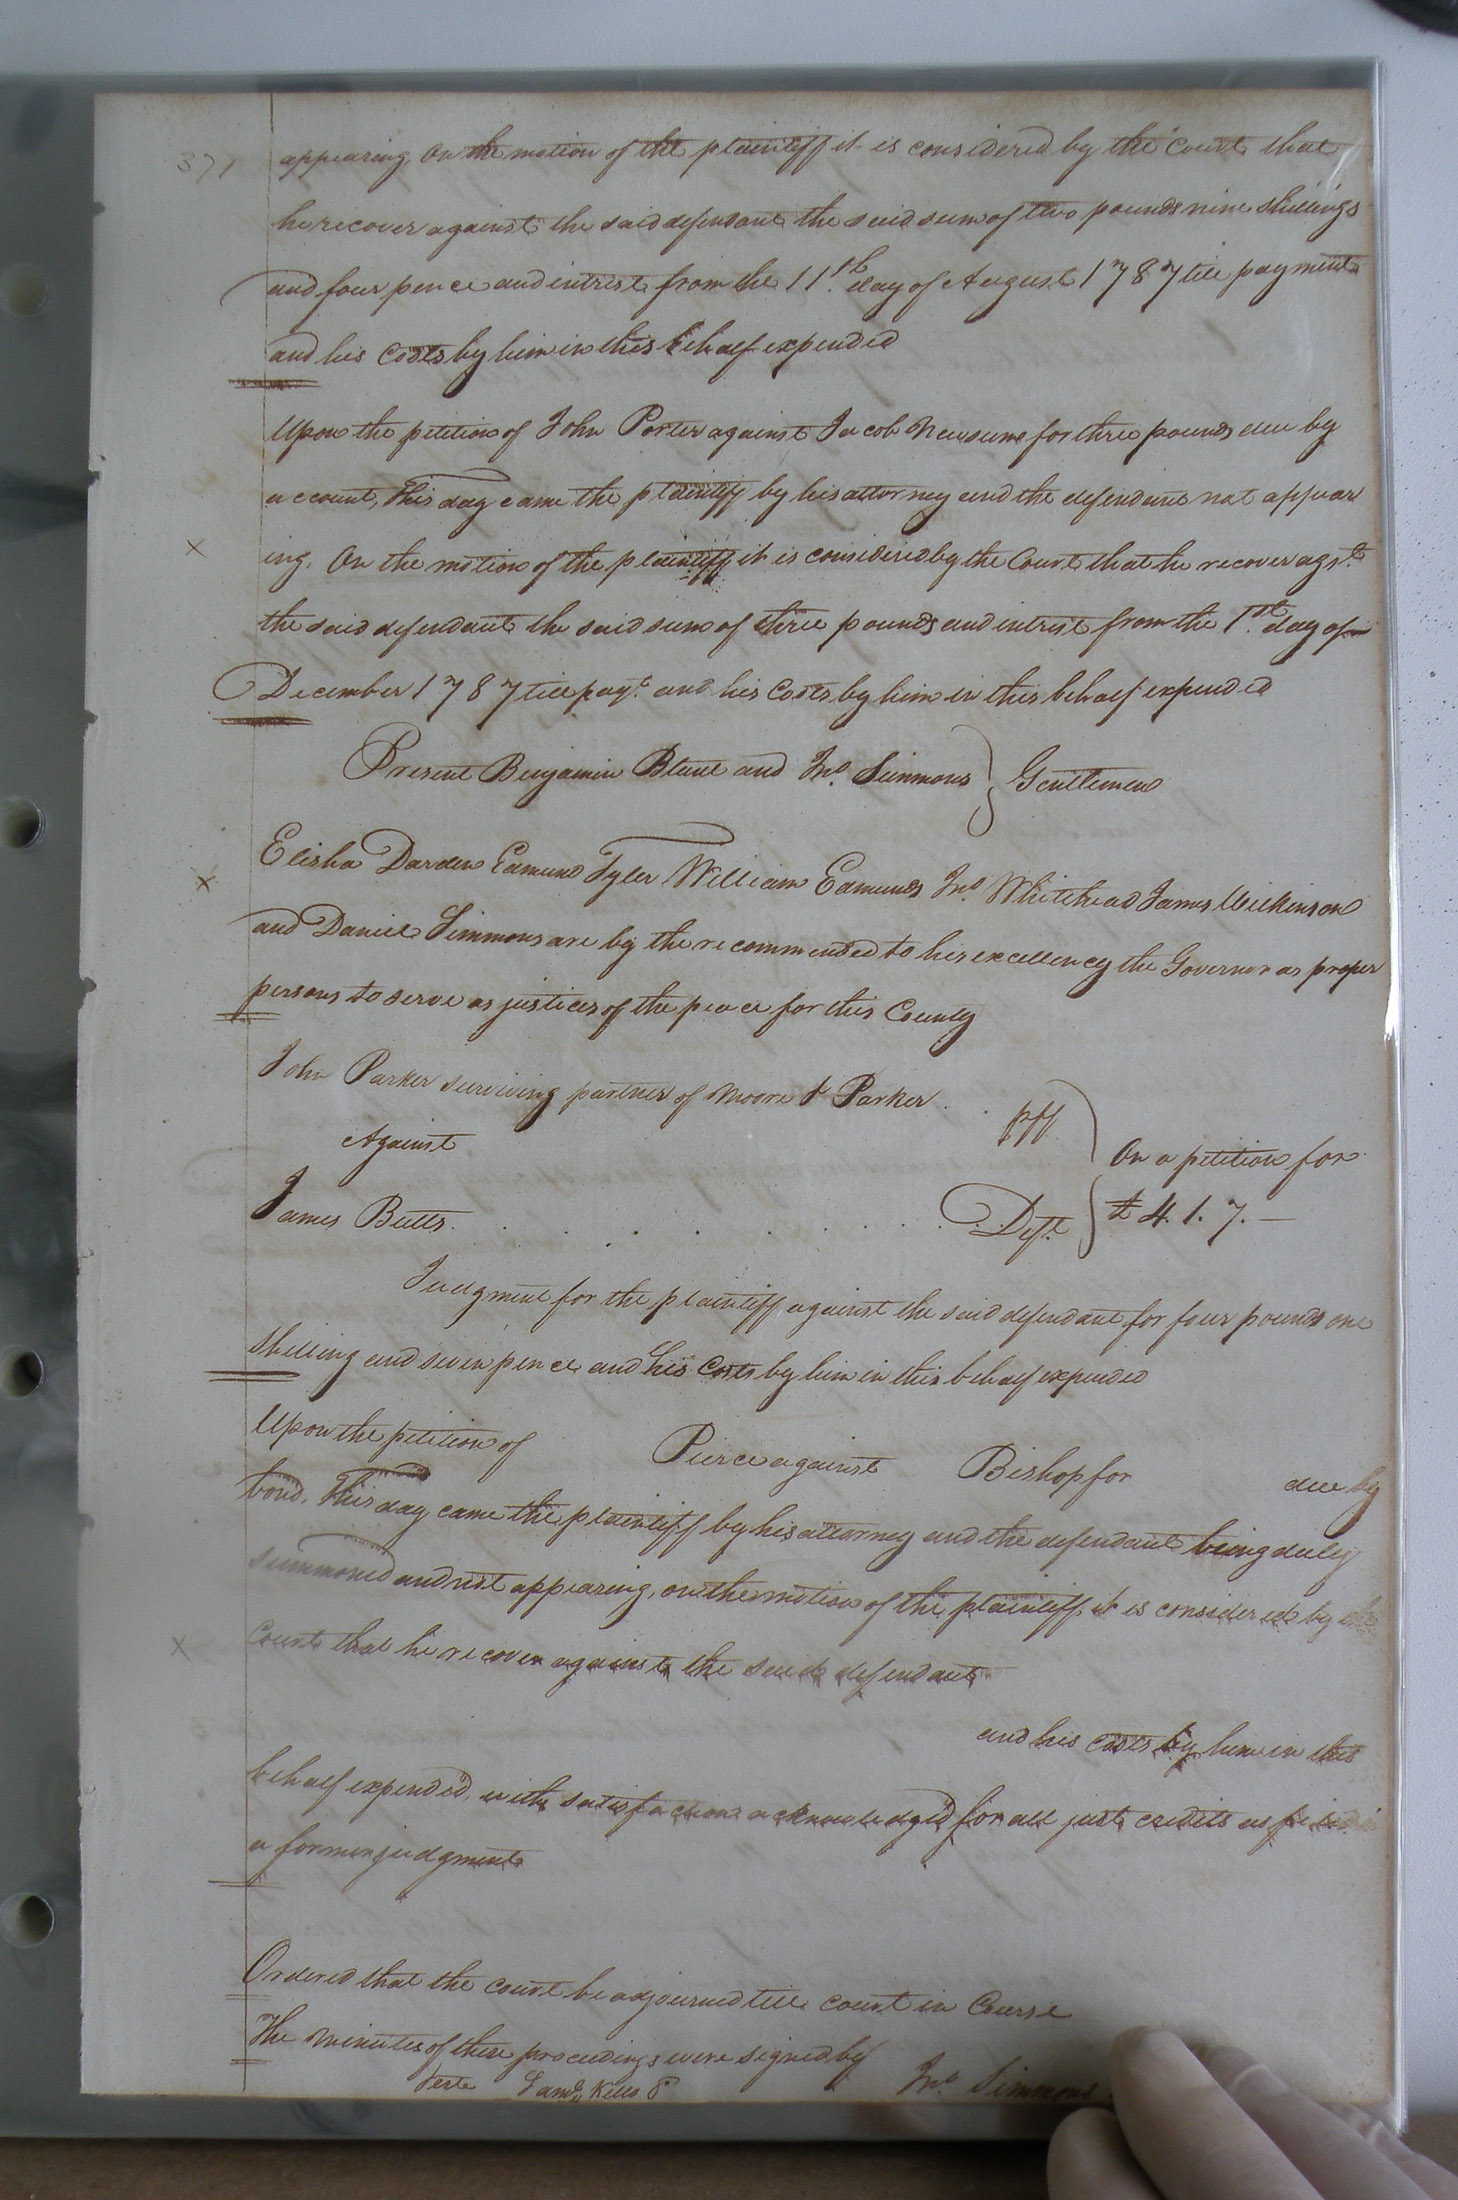 371
appearing, On the motion of the plaintiff it is considered by the Court that
he recover against the said defendant the said sum of two pounds nine shillings
and four pence and intrest from the 11th day of August 1787 till payment
and his Costs by him in this behalf expended
Upon the petition of John Porter against Jacob Newsume for three pounds due by
account, This day came the plaintiff by his attorney and the defendant not appear
ing. On the motion of the plaintiff it is considered by the Court that he recover agst
the said defendant the said sum of three pounds and intrest from the 1st day of
December 1787 till payt and his Costs by him in this behalf expended
Present Benjamin Blunt and Jno. Simmons } Gentlemen
Elisha Darden Edmund Tyler William Edmunds Jno. Whitehead James Wilkinson
and Daniel Simmons are by the recommended to his excellency the Governor as proper
persons to serve as justices of the peace for this County
John Parker surviving partner of Moore & Parker . . plff
Against
On a petition for
James Butts . . . . . . . . Deft. } £ 4. 1. 7. —
Judgment for the plaintiff against the said defendant for four pounds one
Shilling and seven pence and his Costs by him in this behalf expended
Upon the petition of Pierce against Bishop for due by
bond. This day came the plaintiff by his attorney and the defendant being duly
summoned and not appearing, on the motion of the plaintiff, it is considered by the
Court that he recover against the said defendant
and his costs by him in this
behalf expended, with satisfaction acknowledg'd for all just credits as
a former judgment
Ordered that the court be adjourned till court in Course
The minutes of these proceedings were signed by
Jno. Simmons
Teste Saml. Kello